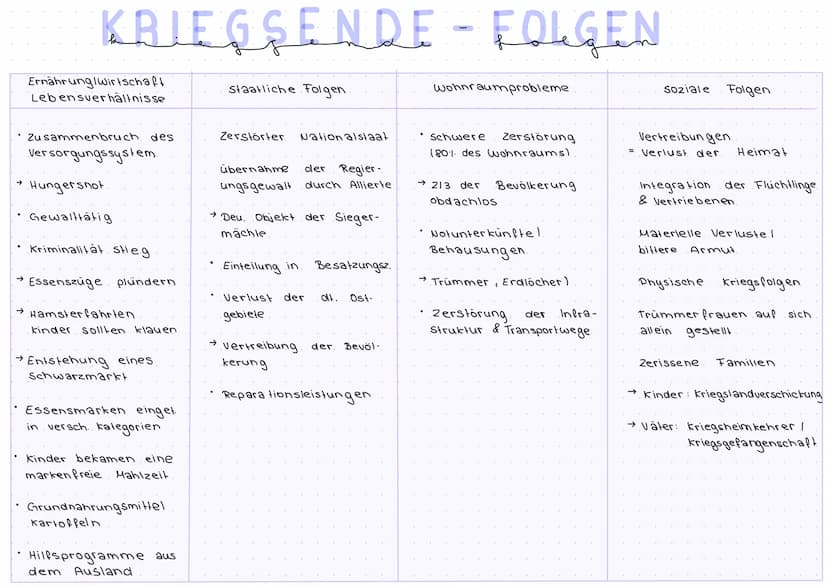 KRIEGSENDE - FOLGEN
kriegsende folgen
Ernährung/Wirtschaft
Lebensverhältnisse
• Zusammenbruch des
Versorgungssystem
→ Hungersnot
• Gewalttätig
• Kriminalität stieg
→ Essenszüge plündern
→ Hamsterfahrten
kinder sollten klauen
→ Entstehung eines
Schwarzmarkt
• Essensmarken einget.
in versch. kategorien
• Kinder bekamen eine
markenfreie Mahlzeit
• Grundnahrungsmittel
Kartoffeln
• Hilfsprogramme aus
dem Ausland
Staatliche Folgen
Zerstörter Nationalstaat
übernahme der Regier-
ungsgewalt durch Allierte
→ Deu. Objekt der Sieger-
mächte
• Einteilung in Besatzungsz.
• Verlust der dt. Ost-
gebiete
→ Vertreibung der Bevöl-
kerung
• Reparationsleistungen
Wohnraumprobleme
• Schwere Zerstörung
(80% des Wohnraums)
→ 2/3 der Bevölkerung
obdachlos
• Notunterkünfte/
Behausungen
→ Trümmer, Erdlöcher)
• Zerstörung der Infra-
struktur & Transportwege
Soziale Folgen
Vertreibungen
= Verlust der Heimat
Integration der Flüchtlinge
& Vertriebenen
Materielle Verluste/
bittere Armut
Physische Kriegsfolgen
Trümmerfrauen auf sich
allein gestellt
Zerissene Familien
→ Kinder: Kriegslandverschickung
→ Väter: Kriegsheimkehrer/
kriegsgefangenschaft